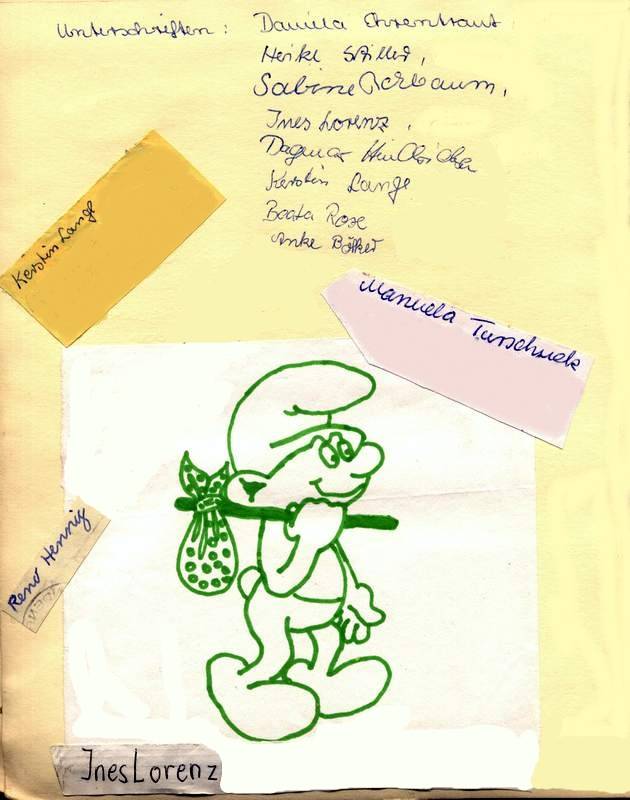 Unterschriften: Daniela Ehrentraut
Heike
Sabine
Ines Lorenz,
Dagmar
Kerstin Lange
Beata Rose
Anke
Kerstin Lange
Manuela
Reno Hennig
Ines Lorenz